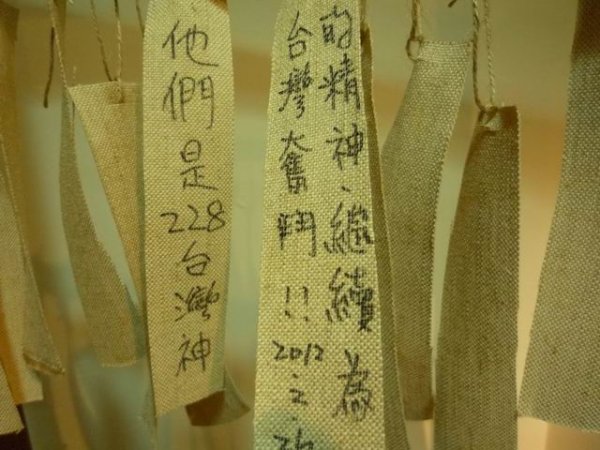 的精神、繼續為
台灣奮鬥!! 2012.2.
他們是228台灣神